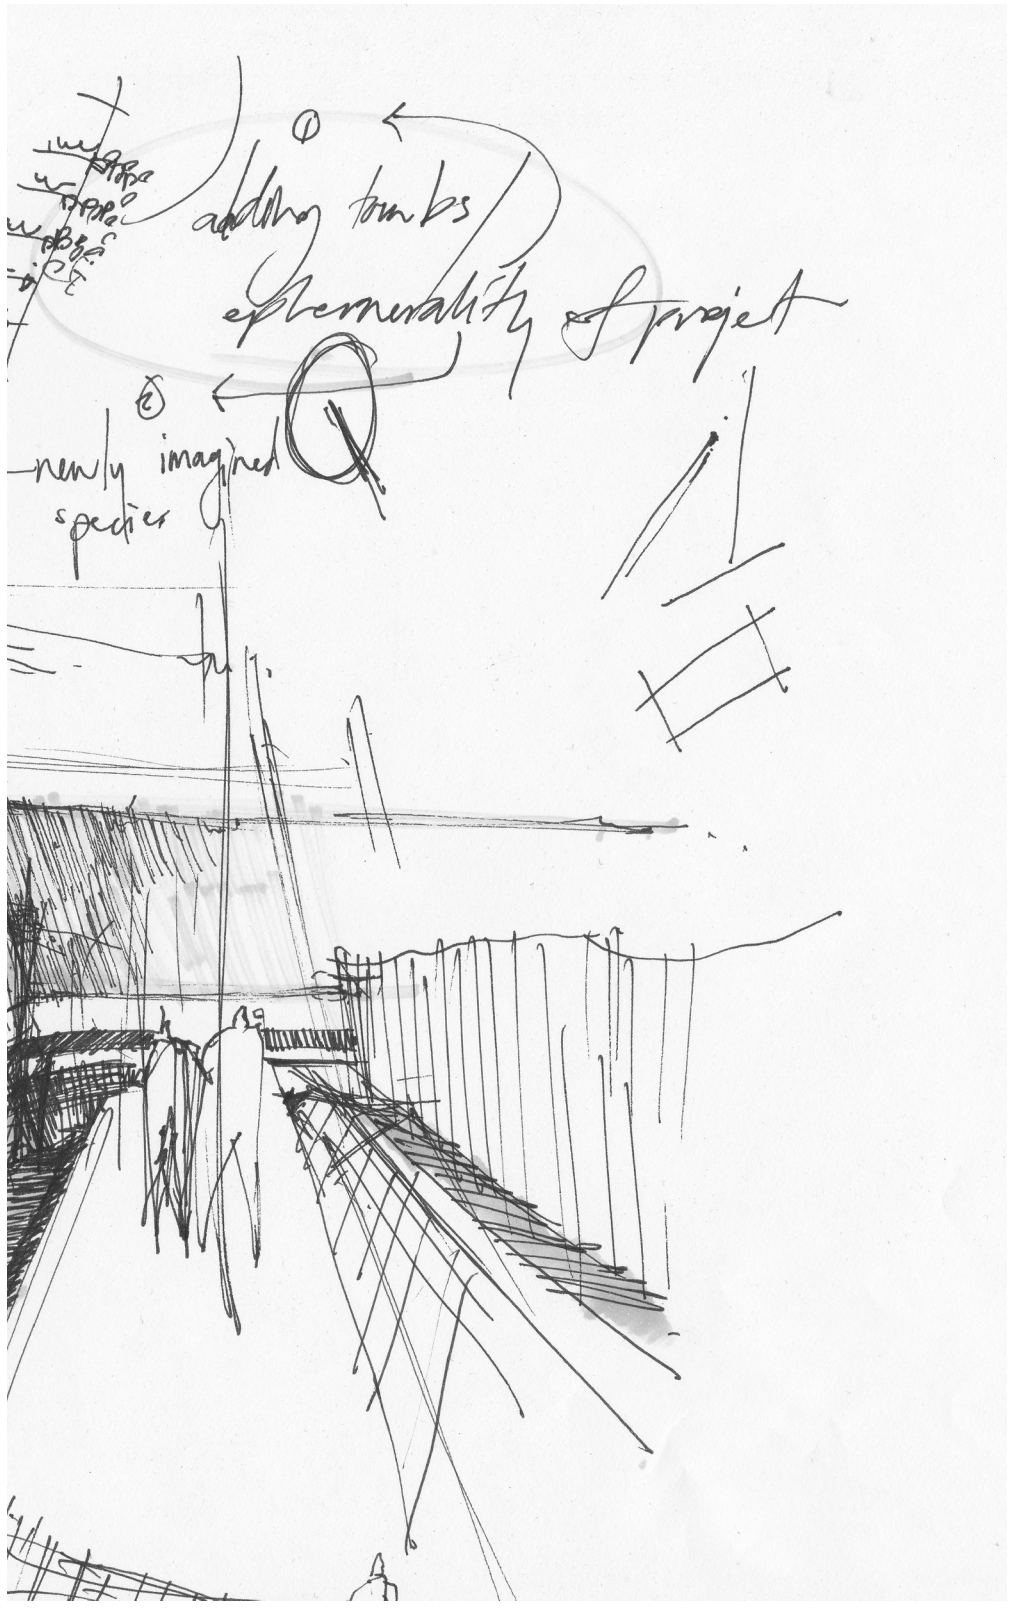 ①
adding tombs
ephemerality of project
②
newly imagined
species